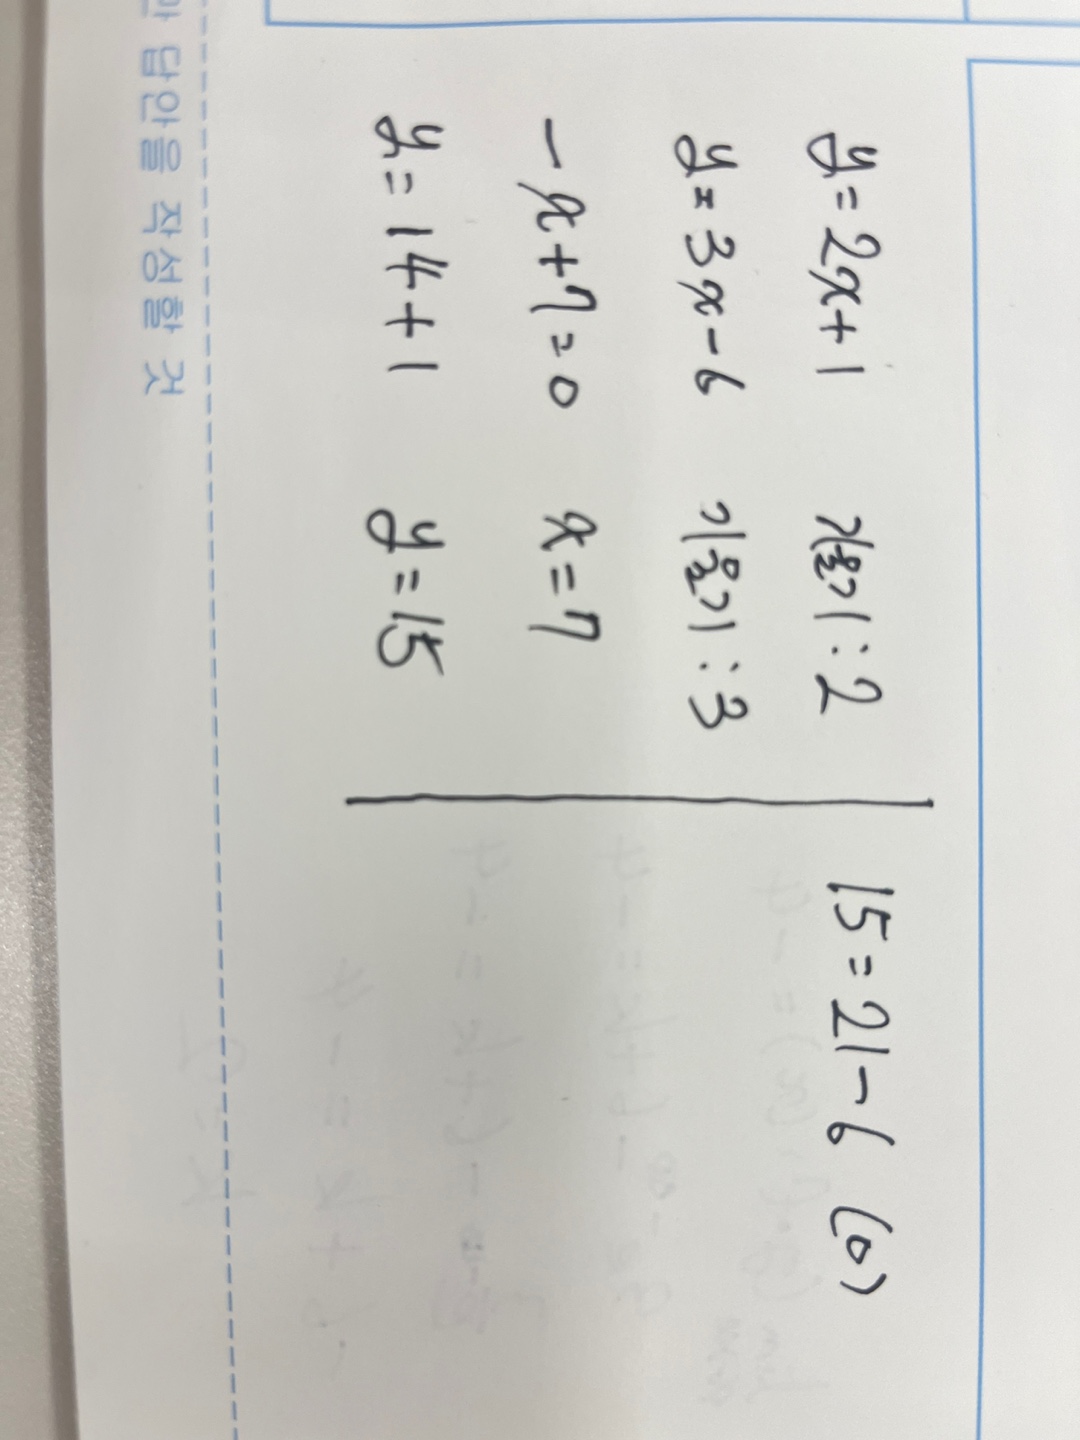 y=2x+1 기울기:2
y=3x-6 기울기:3
-x+7=0 x=7
y=14+1 y=15
15=21-6 (0)
답안을 작성할 것